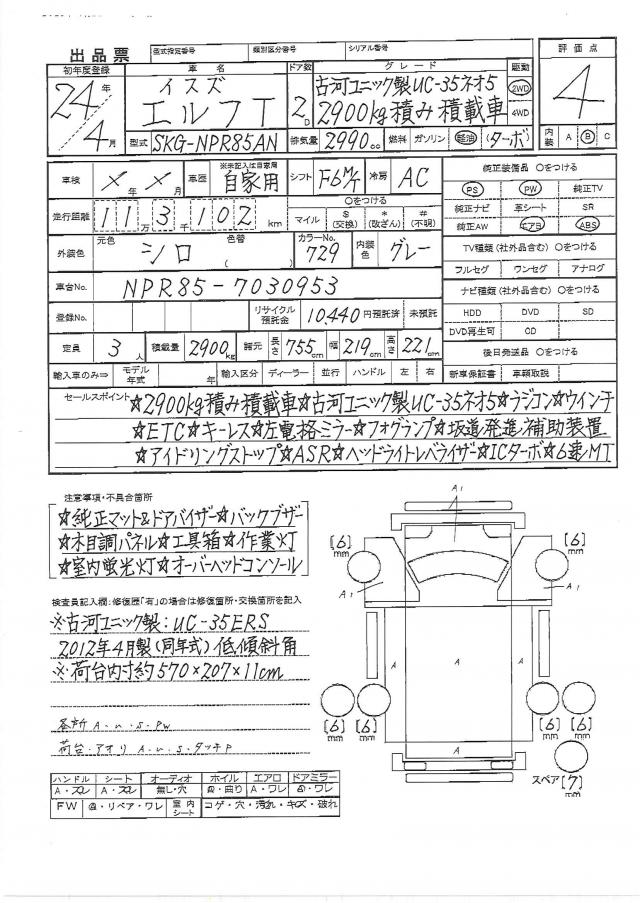 出品票 型式指定番号 類別区分番号 シリアル番号
初年度登録 車名 ドア数 グレード 駆動 評価点
24年 4月 イスズ エルフT 2D 古河ユニック製UC-35ネオ5 2WD 4
2900kg積み積載車 4WD
型式 SKG-NPR85AN 排気量 2990cc 燃料 ガソリン 軽油 (ターボ) 内装 A B C
車検 メ年メ月 車歴 ※未記入は自家用 自家用 シフト F6M/T 冷房 AC 純正装備品 〇をつける
PS PW 純正TV
走行距離 11万3千102km 〇をつける マイル $(交換) *(改ざん) #(不明) 純正ナビ 革シート SR
純正AW エアB ABS
外装色 元色 シロ 色替 ( ) カラーNo. 729 内装色 グレー TV種類(社外品含む) 〇をつける
フルセグ ワンセグ アナログ
車台No. NPR85-7030953 ナビ種類(社外品含む) 〇をつける
登録No. リサイクル預託金 10,440円預託済 未預託 HDD DVD SD
DVD再生可 CD
定員 3人 積載量 2900kg 諸元 長さ 755cm 幅 219cm 高さ 221cm 後日発送品 〇をつける
輸入車のみ⇒ モデル年式 年 輸入区分 ディーラー 並行 ハンドル 左 右 新車保証書 車輌取説
セールスポイント ☆2900kg積み積載車☆古河ユニック製UC-35ネオ5☆ラジコン☆ウインチ
☆ETC☆キーレス☆左電格ミラー☆フォグランプ☆坂道発進補助装置
☆アイドリングストップ☆ASR☆ヘッドライトレベライザー☆ICターボ☆6速MT
注意事項・不具合箇所
☆純正マット&ドアバイザー☆バックブザー
☆木目調パネル☆工具箱☆作業灯
☆室内蛍光灯☆オーバーヘッドコンソール
検査員記入欄:修復歴「有」の場合は修復箇所・交換箇所を記入
※古河ユニック製:UC-35ERS
2012年4月製(同年式)低傾斜角
※荷台内寸約570×207×11cm
各所 A.u.S.PW
荷台.アオリ A.u.S.タッチP
ハンドル シート オーディオ ホイル エアロ ドアミラー
A・スレ A・スレ 無し・穴 曲り A・ワレ ワレ
FW リペア・ワレ 室内シート コゲ・穴・汚れ・キズ・破れ
A1
[6]mm [6]mm
A1 A1
A A A
[6]mm [6]mm [6]mm [6]mm
A
スペア[7]mm